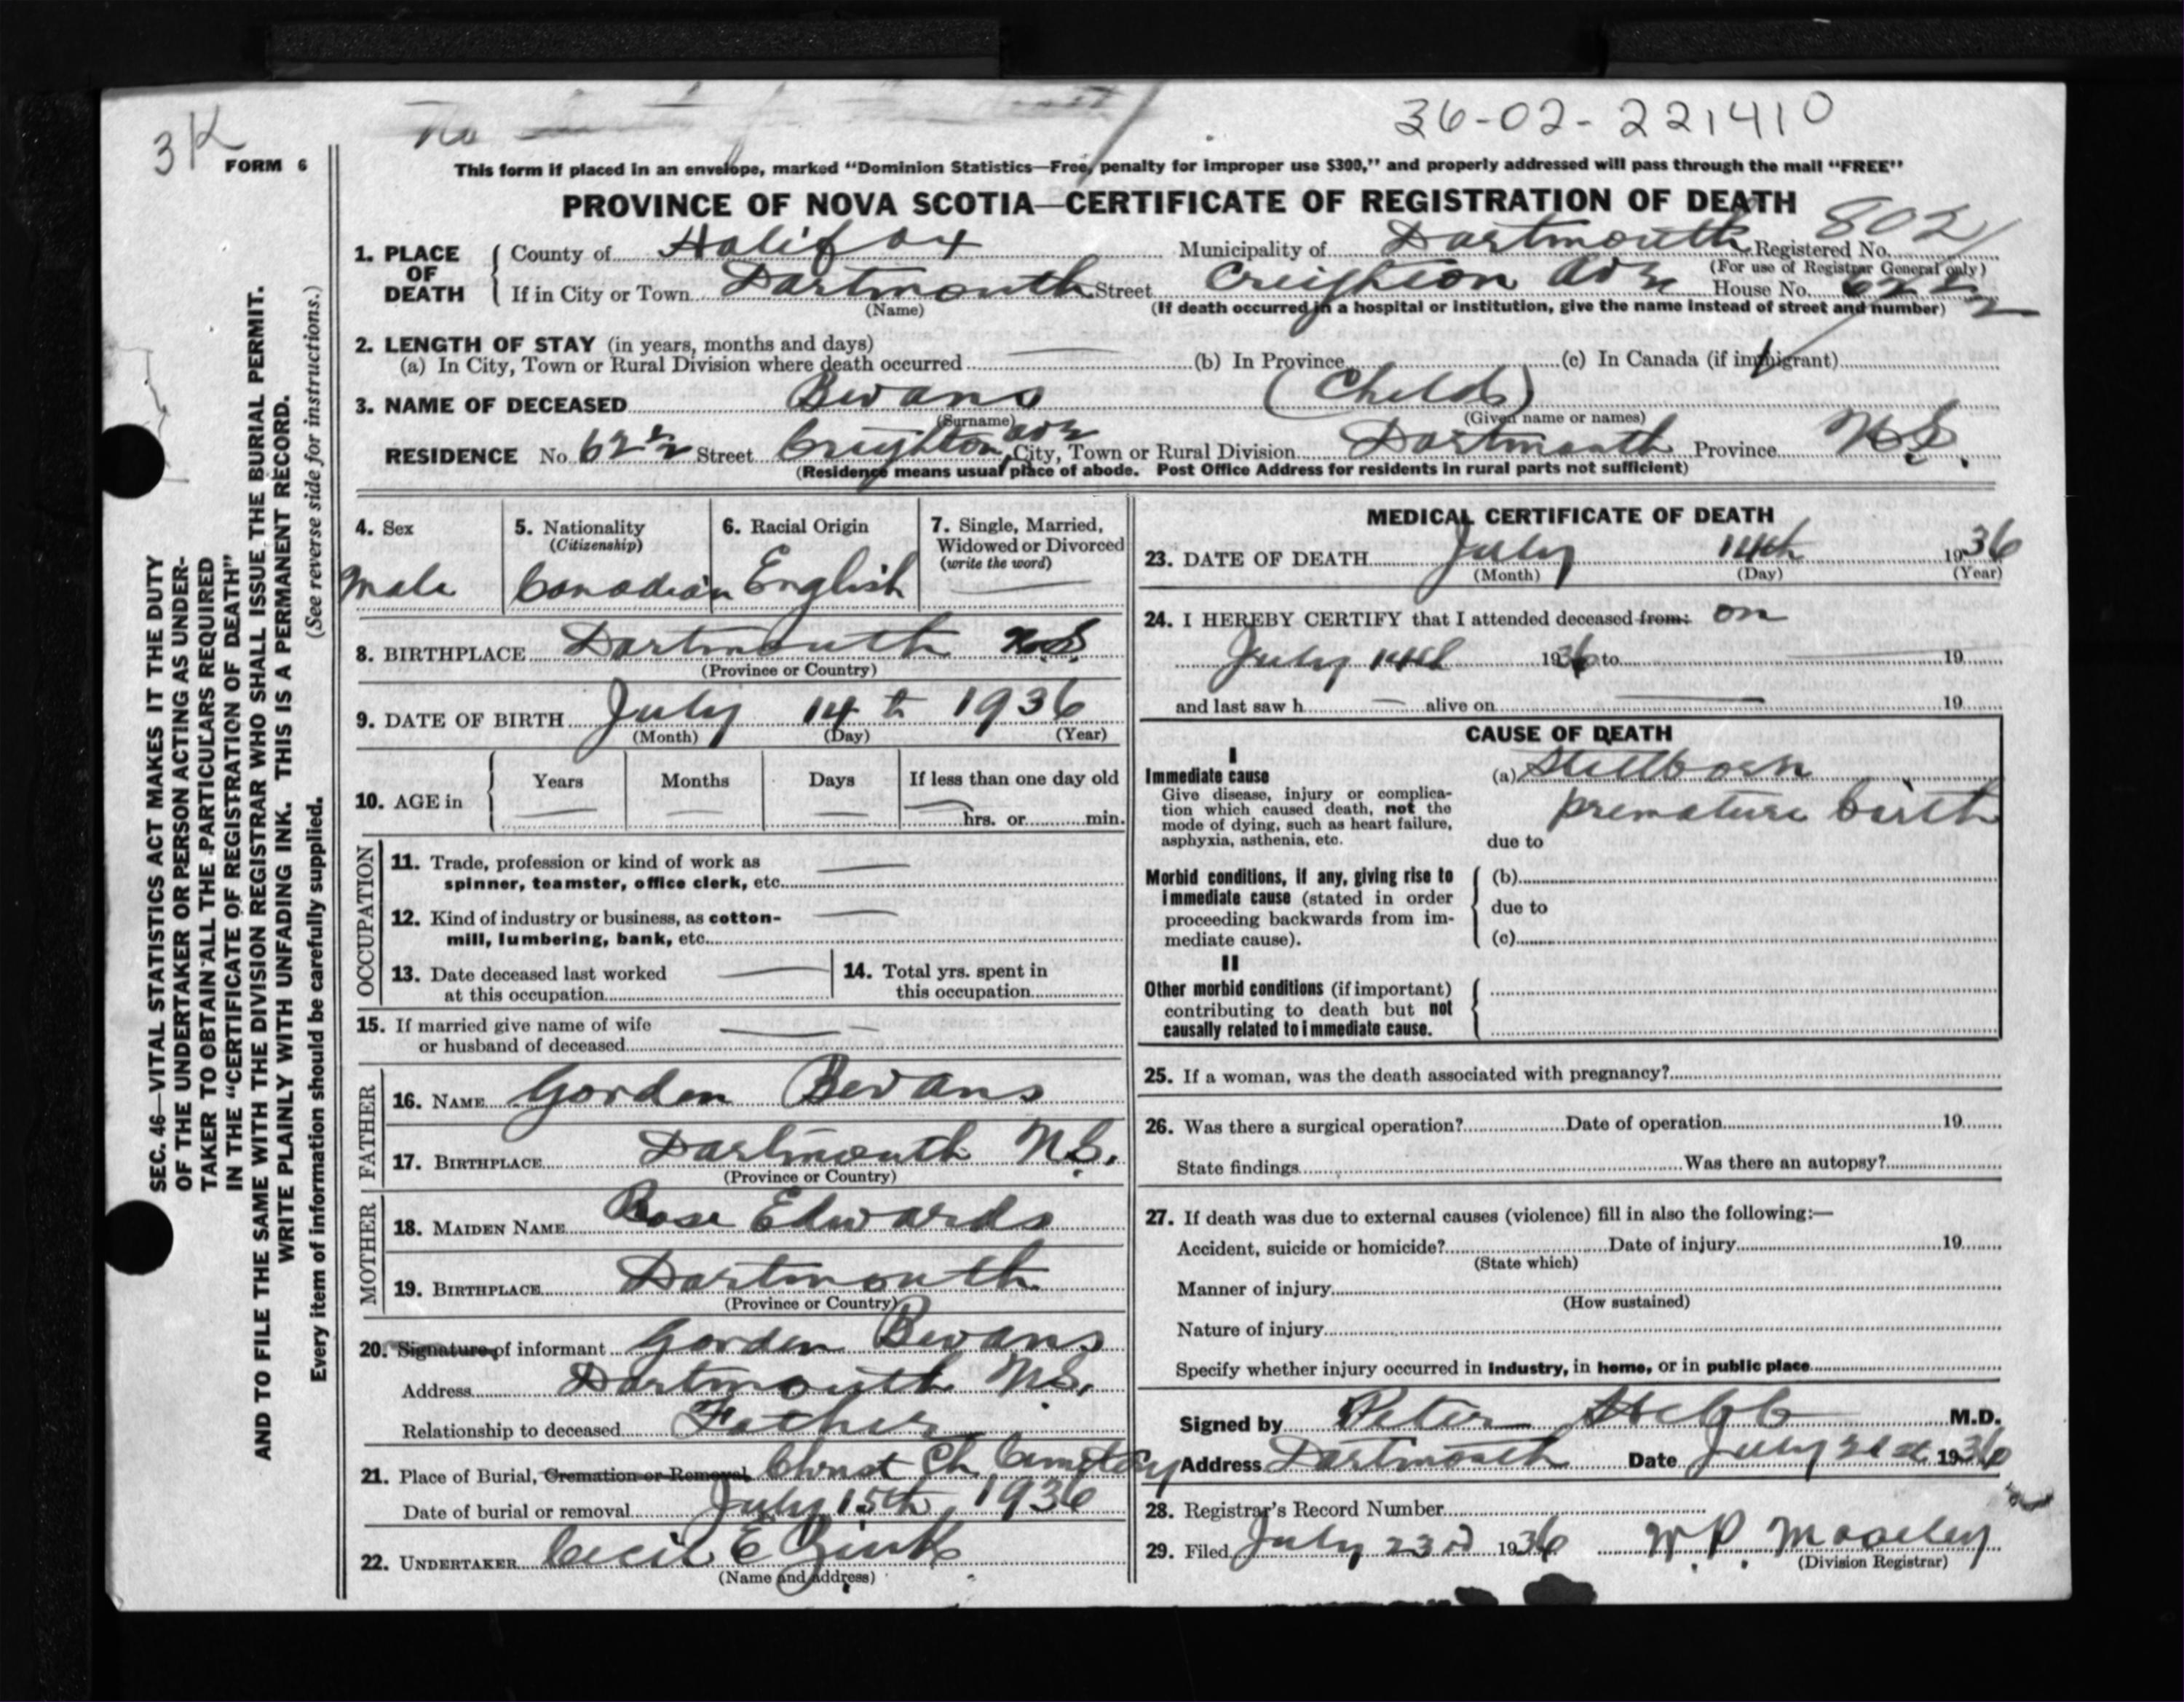 36-02-221410
3K
FORM 6
This form if placed in an envelope, marked "Dominion Statistics—Free, penalty for improper use $300," and properly addressed will pass through the mail "FREE"
PROVINCE OF NOVA SCOTIA—CERTIFICATE OF REGISTRATION OF DEATH
802
1. PLACE OF DEATH { County of Halifax Municipality of Dartmouth Registered No.
(For use of Registrar General only)
If in City or Town Dartmouth Street Creighton Ave House No. 62 1/2
(Name) (If death occurred in a hospital or institution, give the name instead of street and number)
2. LENGTH OF STAY (in years, months and days)
(a) In City, Town or Rural Division where death occurred — (b) In Province (c) In Canada (if immigrant)
3. NAME OF DECEASED Bevans (Child)
(Surname) (Given name or names)
RESIDENCE No. 62 1/2 Street Creighton Ave City, Town or Rural Division Dartmouth Province N.S.
(Residence means usual place of abode. Post Office Address for residents in rural parts not sufficient)
SEC. 46—VITAL STATISTICS ACT MAKES IT THE DUTY
OF THE UNDERTAKER OR PERSON ACTING AS UNDER-
TAKER TO OBTAIN ALL THE PARTICULARS REQUIRED
IN THE "CERTIFICATE OF REGISTRATION OF DEATH"
AND TO FILE THE SAME WITH THE DIVISION REGISTRAR WHO SHALL ISSUE THE BURIAL PERMIT.
WRITE PLAINLY WITH UNFADING INK. THIS IS A PERMANENT RECORD.
Every item of information should be carefully supplied. (See reverse side for instructions.)
4. Sex
Male
5. Nationality
(Citizenship)
Canadian
6. Racial Origin
English
7. Single, Married,
Widowed or Divorced
(write the word)
—
8. BIRTHPLACE Dartmouth N.S.
(Province or Country)
9. DATE OF BIRTH July 14th 1936
(Month) (Day) (Year)
10. AGE in { Years — Months — Days — If less than one day old —
hrs. or min.
OCCUPATION
11. Trade, profession or kind of work as —
spinner, teamster, office clerk, etc.
12. Kind of industry or business, as cotton- —
mill, lumbering, bank, etc.
13. Date deceased last worked —
at this occupation
14. Total yrs. spent in
this occupation
15. If married give name of wife —
or husband of deceased
FATHER
16. NAME Gordon Bevans
17. BIRTHPLACE Dartmouth N.S.
(Province or Country)
MOTHER
18. MAIDEN NAME Rose Edwards
19. BIRTHPLACE Dartmouth
(Province or Country)
20. Signature of informant Gordon Bevans
Address Dartmouth N.S.
Relationship to deceased Father
21. Place of Burial, Cremation or Removal Christ Ch. Cemetery
Date of burial or removal July 15th, 1936
22. UNDERTAKER Cecil E Zink
(Name and address)
MEDICAL CERTIFICATE OF DEATH
23. DATE OF DEATH July 14th 1936
(Month) (Day) (Year)
24. I HEREBY CERTIFY that I attended deceased from: on
July 14th 1936 to — 19
and last saw h — alive on — 19
CAUSE OF DEATH
I
Immediate cause (a) Stillborn
Give disease, injury or complica-
tion which caused death, not the
mode of dying, such as heart failure,
asphyxia, asthenia, etc.
premature birth
due to
Morbid conditions, if any, giving rise to
immediate cause (stated in order
proceeding backwards from im-
mediate cause).
(b)
due to
(c)
II
Other morbid conditions (if important)
contributing to death but not
causally related to immediate cause.
25. If a woman, was the death associated with pregnancy?
26. Was there a surgical operation? Date of operation 19
State findings Was there an autopsy?
27. If death was due to external causes (violence) fill in also the following:—
Accident, suicide or homicide? Date of injury 19
(State which)
Manner of injury
(How sustained)
Nature of injury
Specify whether injury occurred in industry, in home, or in public place
Signed by Peter Hebb M.D.
Address Dartmouth Date July 21st 1936
28. Registrar's Record Number
29. Filed July 23rd 1936 W. P. Moseley
(Division Registrar)